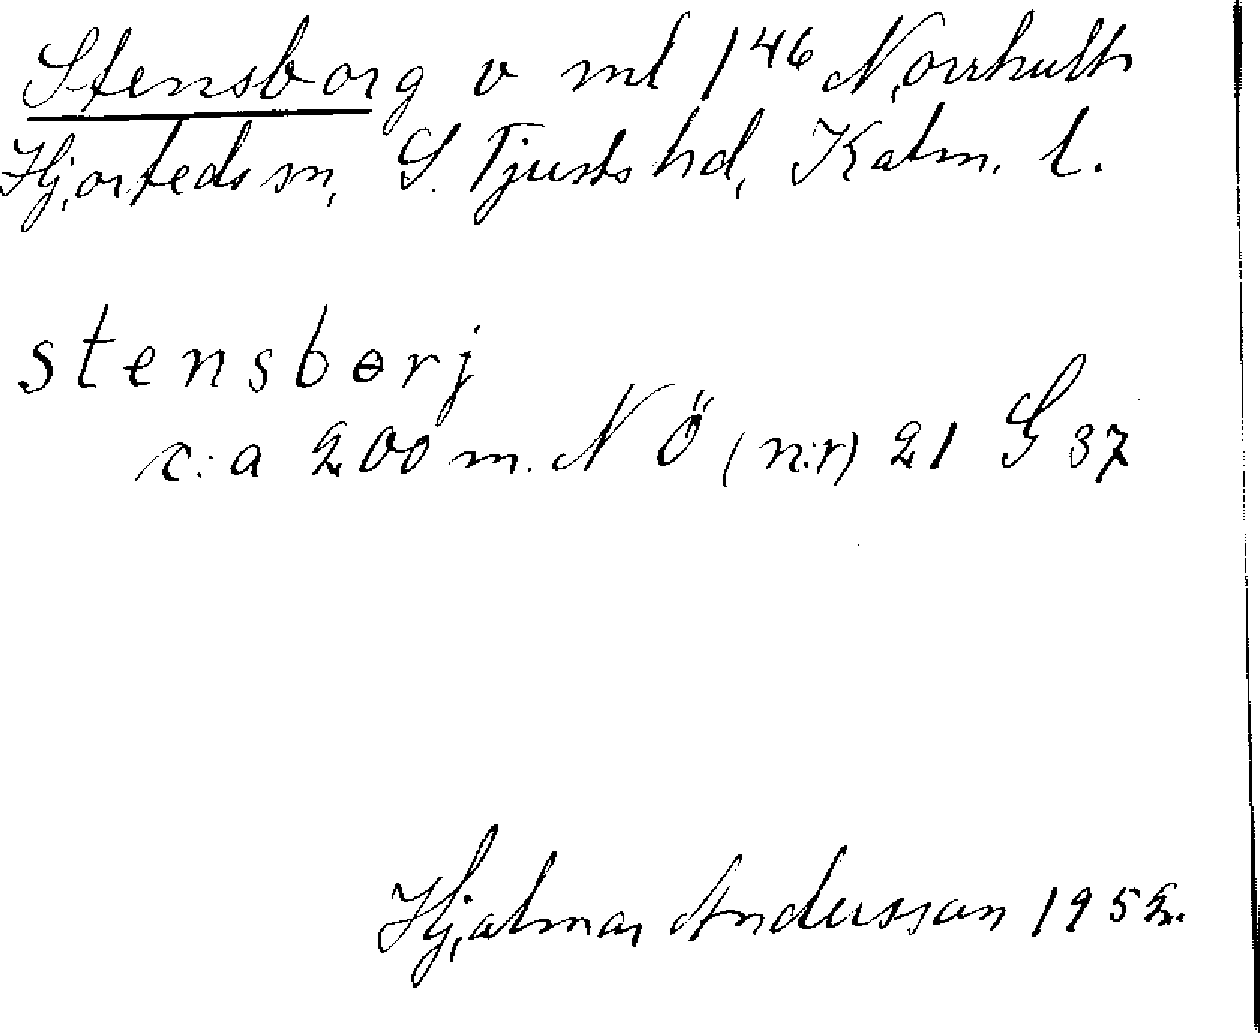 Stensborg v ml 1⁴⁶ Norrhult
Hjorteds sn, S. Tjusts hd, Kalm. l.
stensbɵrj
c:a 200 m. N Ö (n:r) 21 G 37
Hjalmar Andersson 1952.